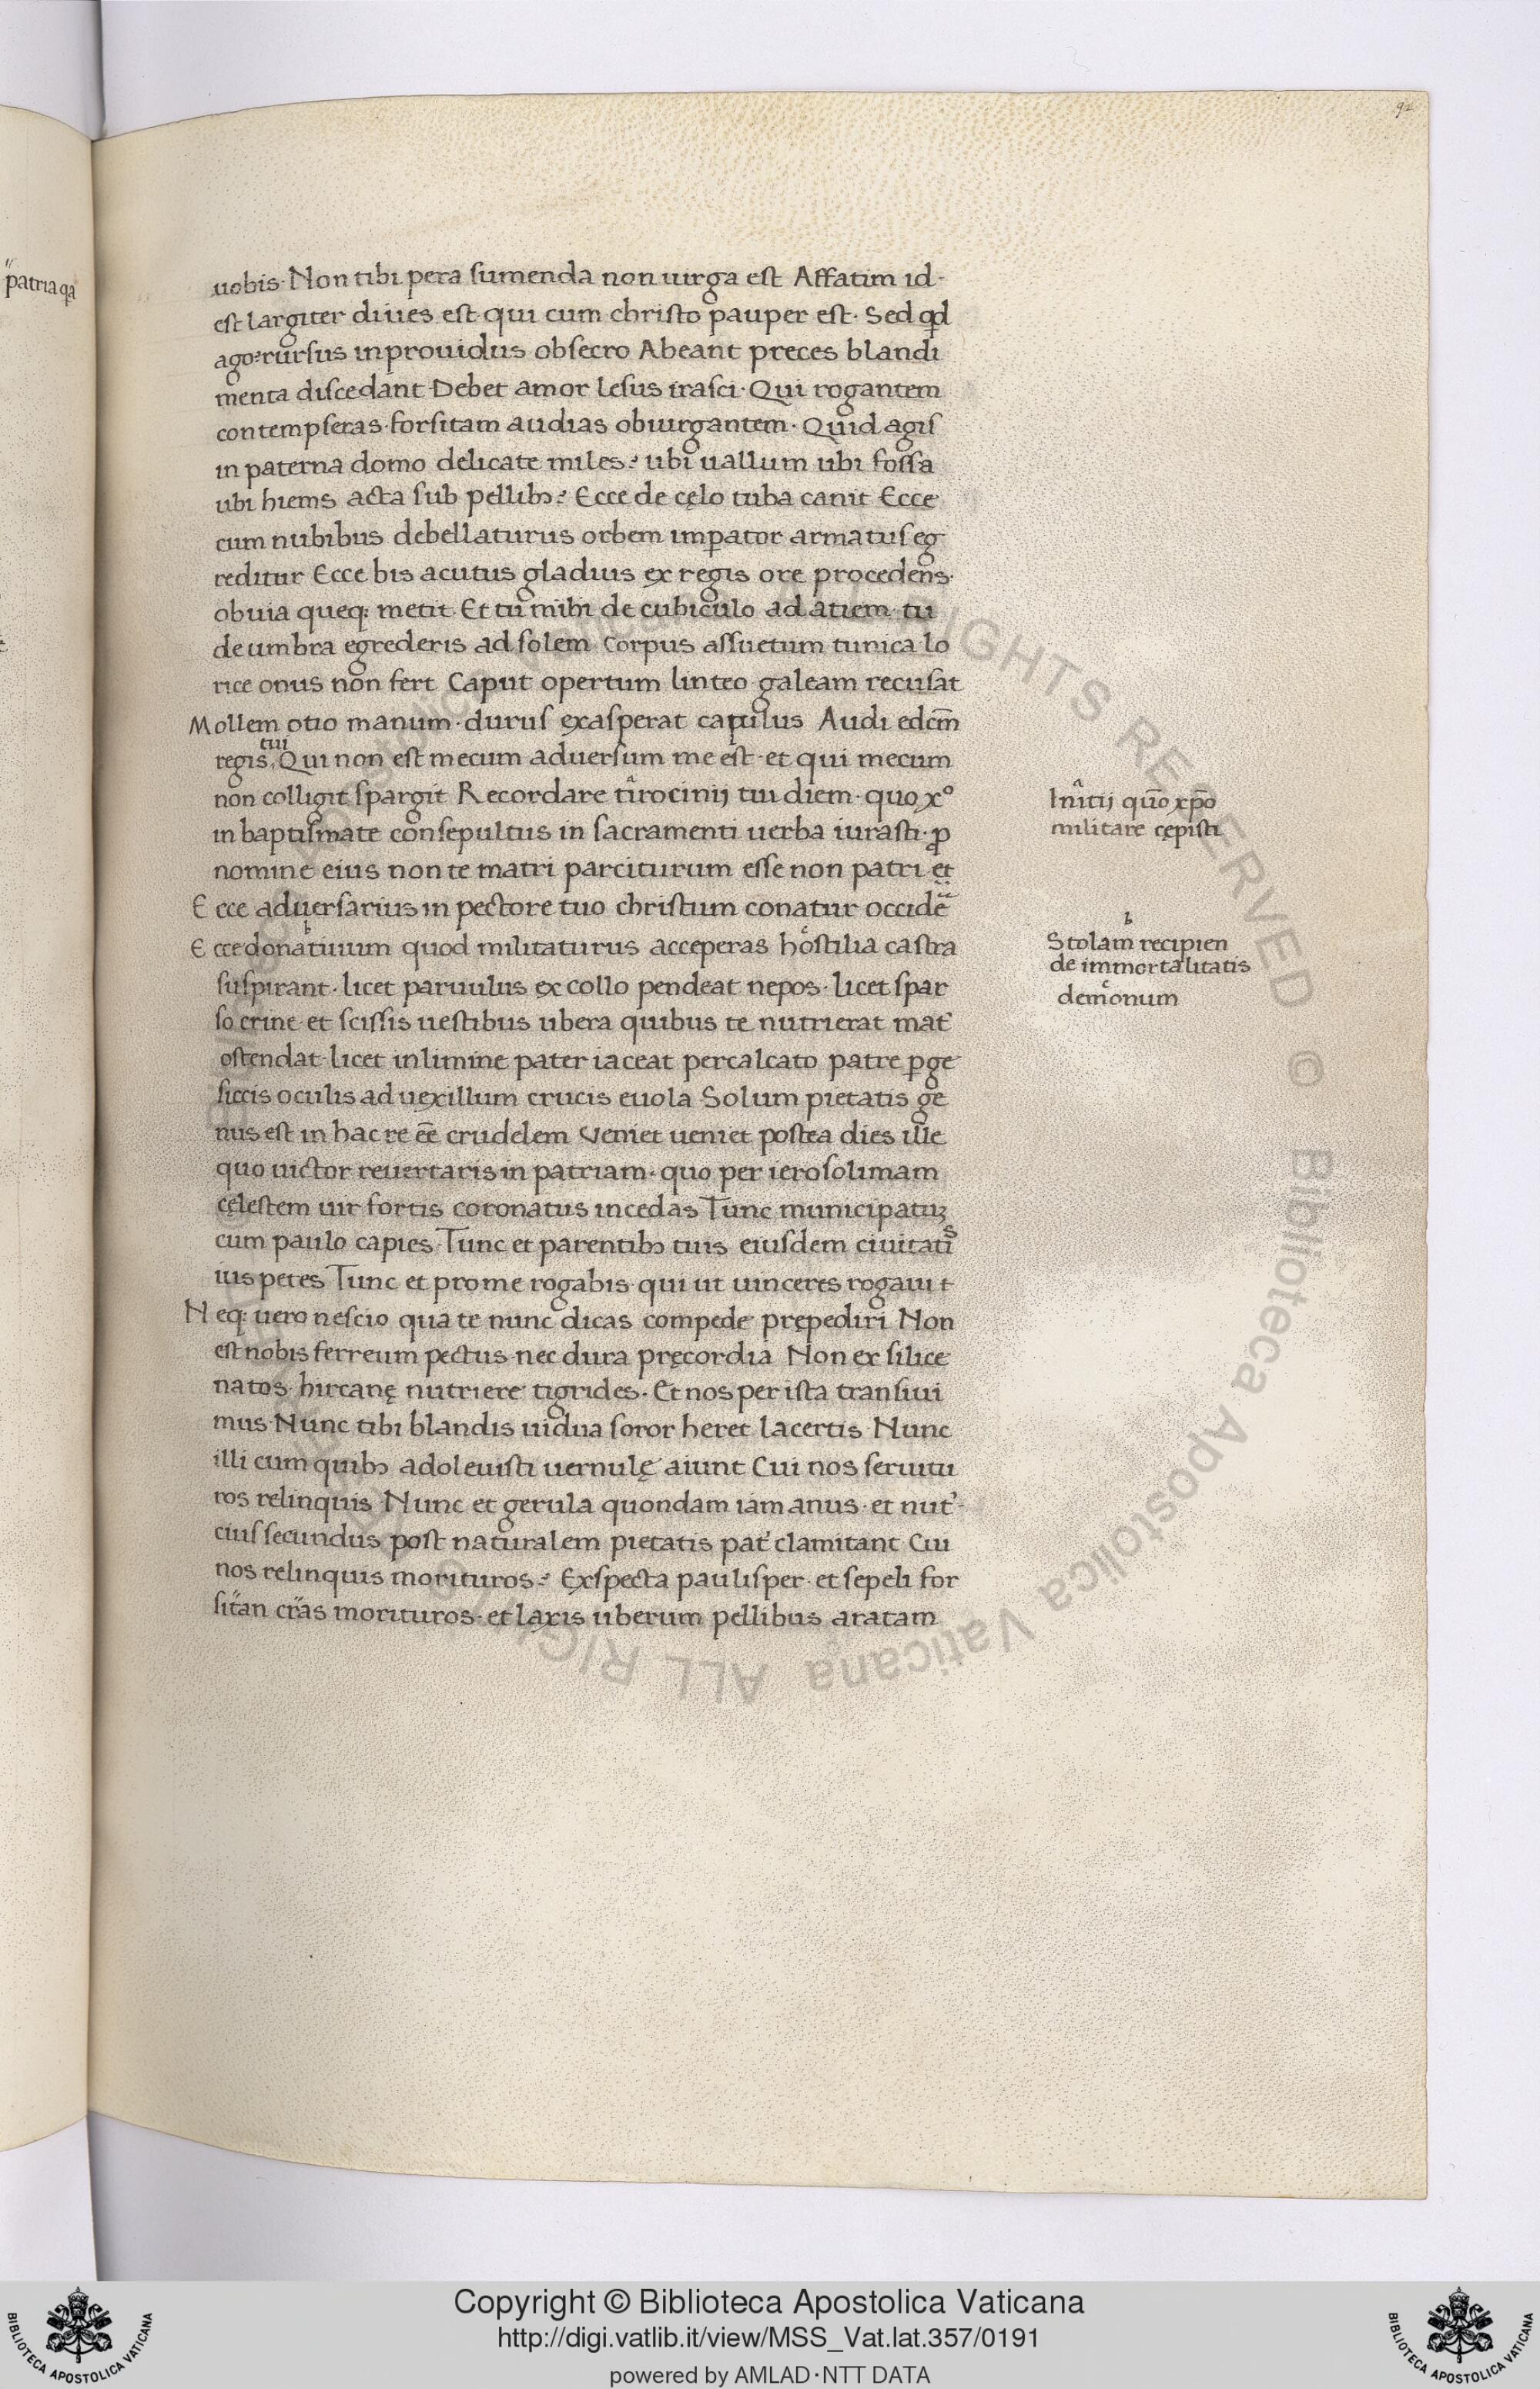 92
patria qa
uobis· Non tibi pera sumenda non uirga est Affatim id·
est largiter diues est· qui cum christo pauper est· Sed qd
ago? rursus inprouidus obsecro Abeant preces blandi
menta discedant Debet amor lesus irasci· Qui rogantem
contempseras· forsitam audias obiurgantem· Quid agis
in paterna domo delicate miles? ubi uallum ubi fossa
ubi hiems acta sub pellibꝫ? Ecce de cęlo tuba canit Ecce
cum nubibus debellaturus orbem imꝑator armatus eg
reditur Ecce bis acutus gladius ex regis ore procedens·
obuia queq; metit Et tu mihi de cubiculo ad atiem· tu
de umbra egrederis ad solem Corpus assuetum tunica lo
rice onus non fert Caput opertum linteo galeam recusat
Mollem otio manum· durus exasperat capulus Audi edcm̄
regis tui Qui non est mecum aduersum me est· et qui mecum
non colligit spargit Recordare tirocinij tui diem· quo xº
in baptismate consepultus in sacramenti uerba iurasti· ꝓ
nomine eius non te matri parciturum esse non patri et
Ecce aduersarius in pectore tuo christum conatur occidē
Ecce donatiuum quod militaturus acceperas hostilia castra
suspirant· licet paruulus ex collo pendeat nepos· licet spar
so crine et scissis uestibus ubera quibus te nutrierat mat᾽
ostendat licet in limine pater iaceat percalcato patre ꝑge
siccis oculis ad uexillum crucis euola Solum pietatis ge
nus est in hac re eē crudelem Veniet ueniet postea dies ille
quo uictor reuertaris in patriam· quo per ierosolimam
cęlestem uir fortis coronatus incedas Tunc municipatuꝫ
cum paulo capies Tunc et parentibꝫ tuis eiusdem ciuitatis
ius petes Tunc et pro me rogabis· qui ut uinceres rogauit
Neq; uero nescio qua te nunc dicas compede prępediri Non
est nobis ferreum pectus nec dura pręcordia Non ex silice
natos hircanę nutriere tigrides· Et nos per ista transiui
mus Nunc tibi blandis uidua soror heret lacertis Nunc
illi cum quibꝫ adoleuisti uernulę aiunt Cui nos seruitu
ros relinquis Nunc et gerula quondam iam anus· et nut᾽
cius secundus post naturalem pietatis pat᾽ clamitant Cui
nos relinquis morituros? Exspecta paulisper· et sepeli for
sitan cras morituros· et laxis uberum pellibus aratam
Initij quō xp̄o
militare cępisti
b
Stolam recipien
de immortalitatis
c
demonum
ALL RIGHTS RESERVED © Biblioteca Apostolica Vaticana
Copyright © Biblioteca Apostolica Vaticana
http://digi.vatlib.it/view/MSS_Vat.lat.357/0191
powered by AMLAD·NTT DATA
BIBLIOTECA APOSTOLICA VATICANA
BIBLIOTECA APOSTOLICA VATICANA